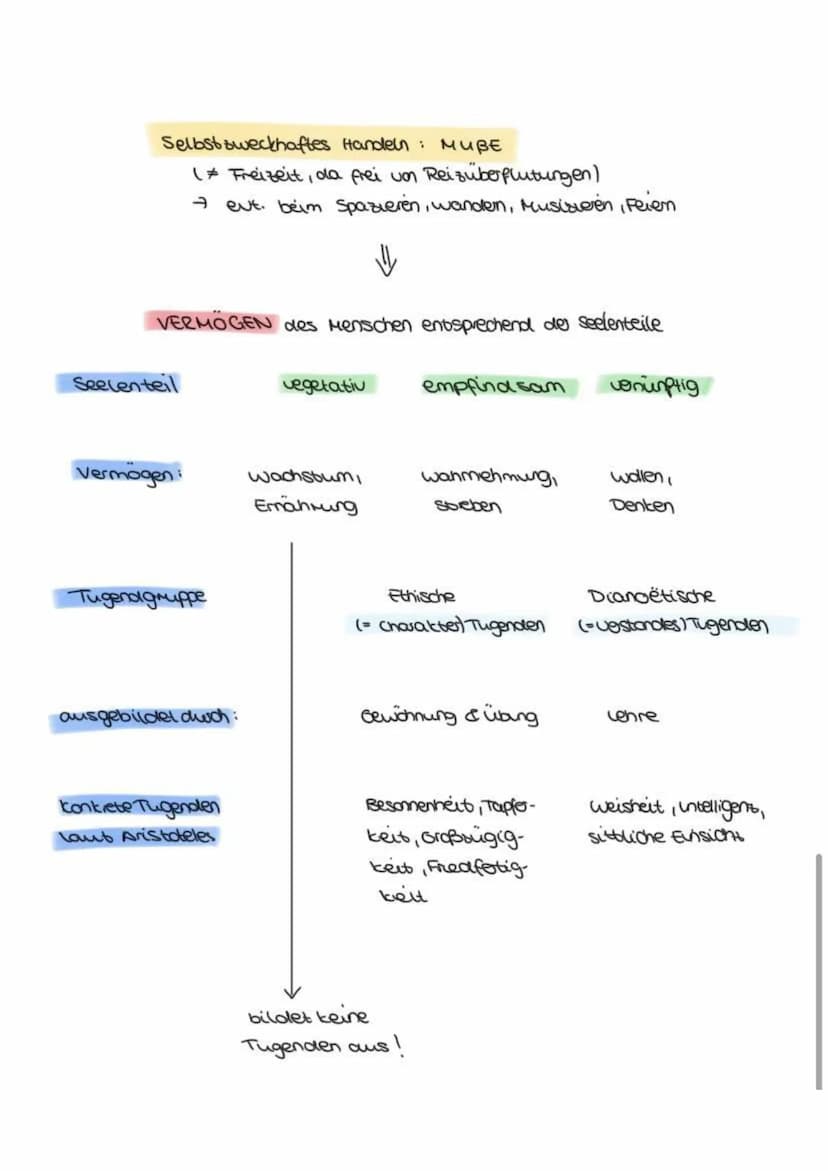 Selbstzweckhaftes Handeln : MUßE
(≠ Freizeit, da frei von Reizüberflutungen)
→ evt. beim Spazieren, wandern, Musizieren, Feiern
⇓
VERMÖGEN des Menschen entsprechend der Seelenteile
Seelenteil vegetativ empfindsam vernünftig
Vermögen: Wachstum, Wahrnehmung, Wollen,
Ernährung Streben Denken
Tugendgruppe Ethische Dianoëtische
(= Charakter) Tugenden (= Verstandes) Tugenden
ausgebildet durch: Gewöhnung & Übung Lehre
konkrete Tugenden Besonnenheit, Tapfer- Weisheit, Intelligenz,
laut Aristoteles keit, Großzügig- sittliche Einsicht
keit, Friedfertig-
keit
bildet keine
Tugenden aus!